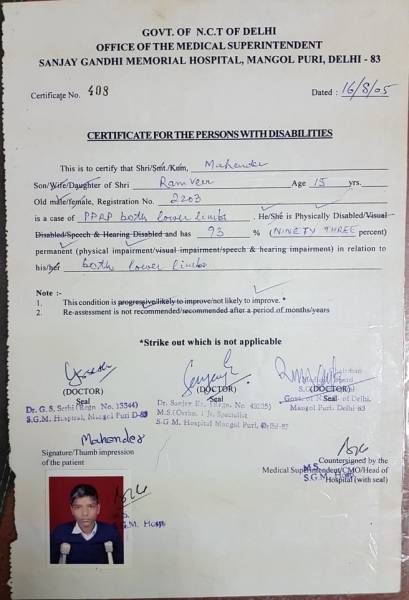 GOVT. OF N.C.T OF DELHI
OFFICE OF THE MEDICAL SUPERINTENDENT
SANJAY GANDHI MEMORIAL HOSPITAL, MANGOL PURI, DELHI - 83
Certificate No. 408 Dated : 16/8/05
CERTIFICATE FOR THE PERSONS WITH DISABILITIES
This is to certify that Shri/Smt./Kum, Mahender
Son/Wife/Daughter of Shri Ram Veer Age 15 yrs.
Old male/female, Registration No. 2203
is a case of PPRP both lower limbs . He/She is Physically Disabled/Visual
Disabled/Speech & Hearing Disabled and has 93 % (NINETY THREE percent)
permanent (physical impairment/visual impairment/speech & hearing impairment) in relation to
his/her both lower limbs
Note :-
1. This condition is progressive/likely to improve/not likely to improve. *
2. Re-assessment is not recommended/recommended after a period of months/years
*Strike out which is not applicable
(DOCTOR) (DOCTOR) (DOCTOR)
Seal Seal Seal
Dr. G.S. Sethi (Regn. No. 13344)
S.G.M. Hospital, Mangol Puri D-83
M.S. (Ortho.) Jr. Specialist
S.G. M Hospital Mangol Puri, Delhi-83
Govt. of N.C.T. of Delhi.
Mangol Puri. Delhi-83
Mahender
Signature/Thumb impression
of the patient
Countersigned by the
Medical Superintendent/CMO/Head of
Hospital (with seal)
M.S.
S.G.M. Hosp
M.S.
S.G.M. Hosp